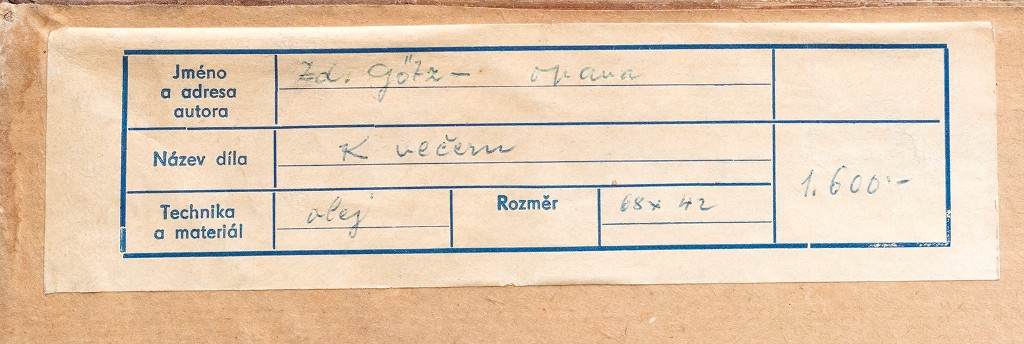 Jméno
a adresa
autora
Zd. Götz - Opava
Název díla
K večeru
1.600.-
Technika
a materiál
olej
Rozměr
68x 42